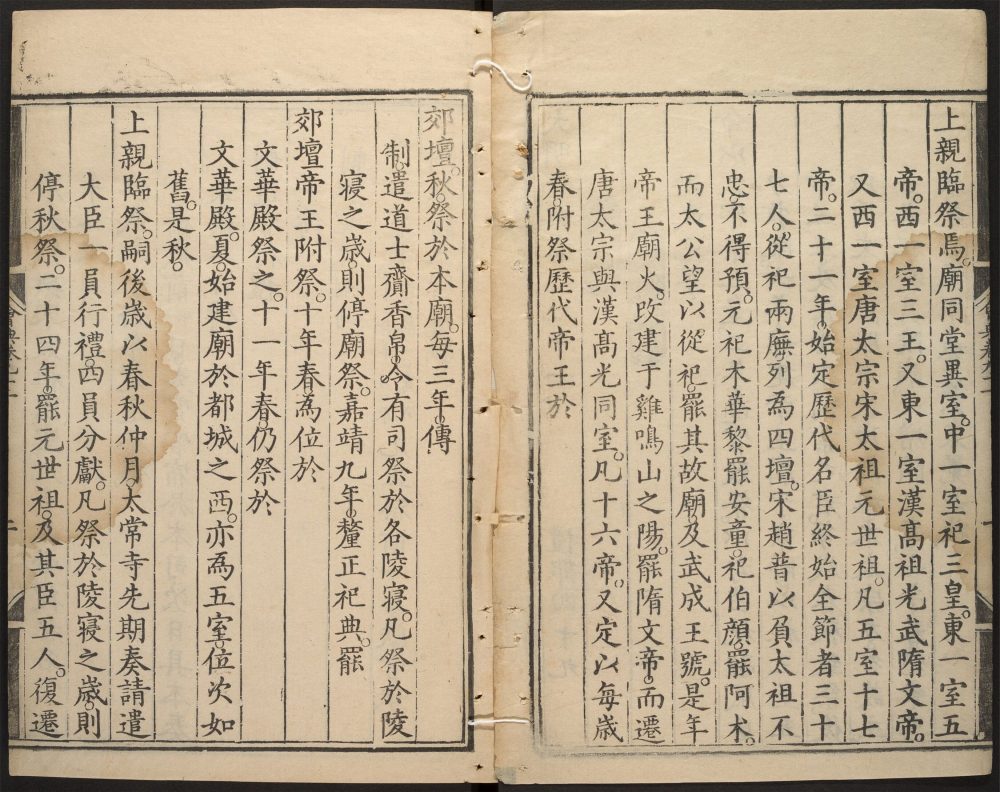 上親臨祭焉。廟同堂異室。中一室祀三皇。東一室五
帝。西一室三王。又東一室漢髙祖光武隋文帝。
又西一室唐太宗宋太祖元世祖。凡五室十七
帝。二十一年。始定歷代名臣終始全節者三十
七人。從祀兩廡。列爲四壇。宋趙普以負太祖不
忠。不得預。元祀木華黎。罷安童。祀伯顔。罷阿术。
而太公望以從祀。罷其故廟。及武成王號。是年
帝王廟火。改建于雞鳴山之陽。罷隋文帝。而遷
唐太宗與漢髙光同室。凡十六帝。又定以每歲
春。附祭歷代帝王於
郊壇。秋。祭於本廟。每三年。傳
制。遣道士齎香帛。令有司祭於各陵寢。凡祭於陵
寢之歲則停廟祭。嘉靖九年。釐正祀典。罷
郊壇帝王附祭。十年春。爲位於
文華殿祭之。十一年春。仍祭於
文華殿。夏。始建廟於都城之西。亦爲五室。位次如
舊。是秋。
上親臨祭。嗣後歲以春秋仲月。太常寺先期奏請遣
大臣一員行禮。四員分獻。凡祭於陵寢之歲。則
停秋祭。二十四年。罷元世祖。及其臣五人。復遷